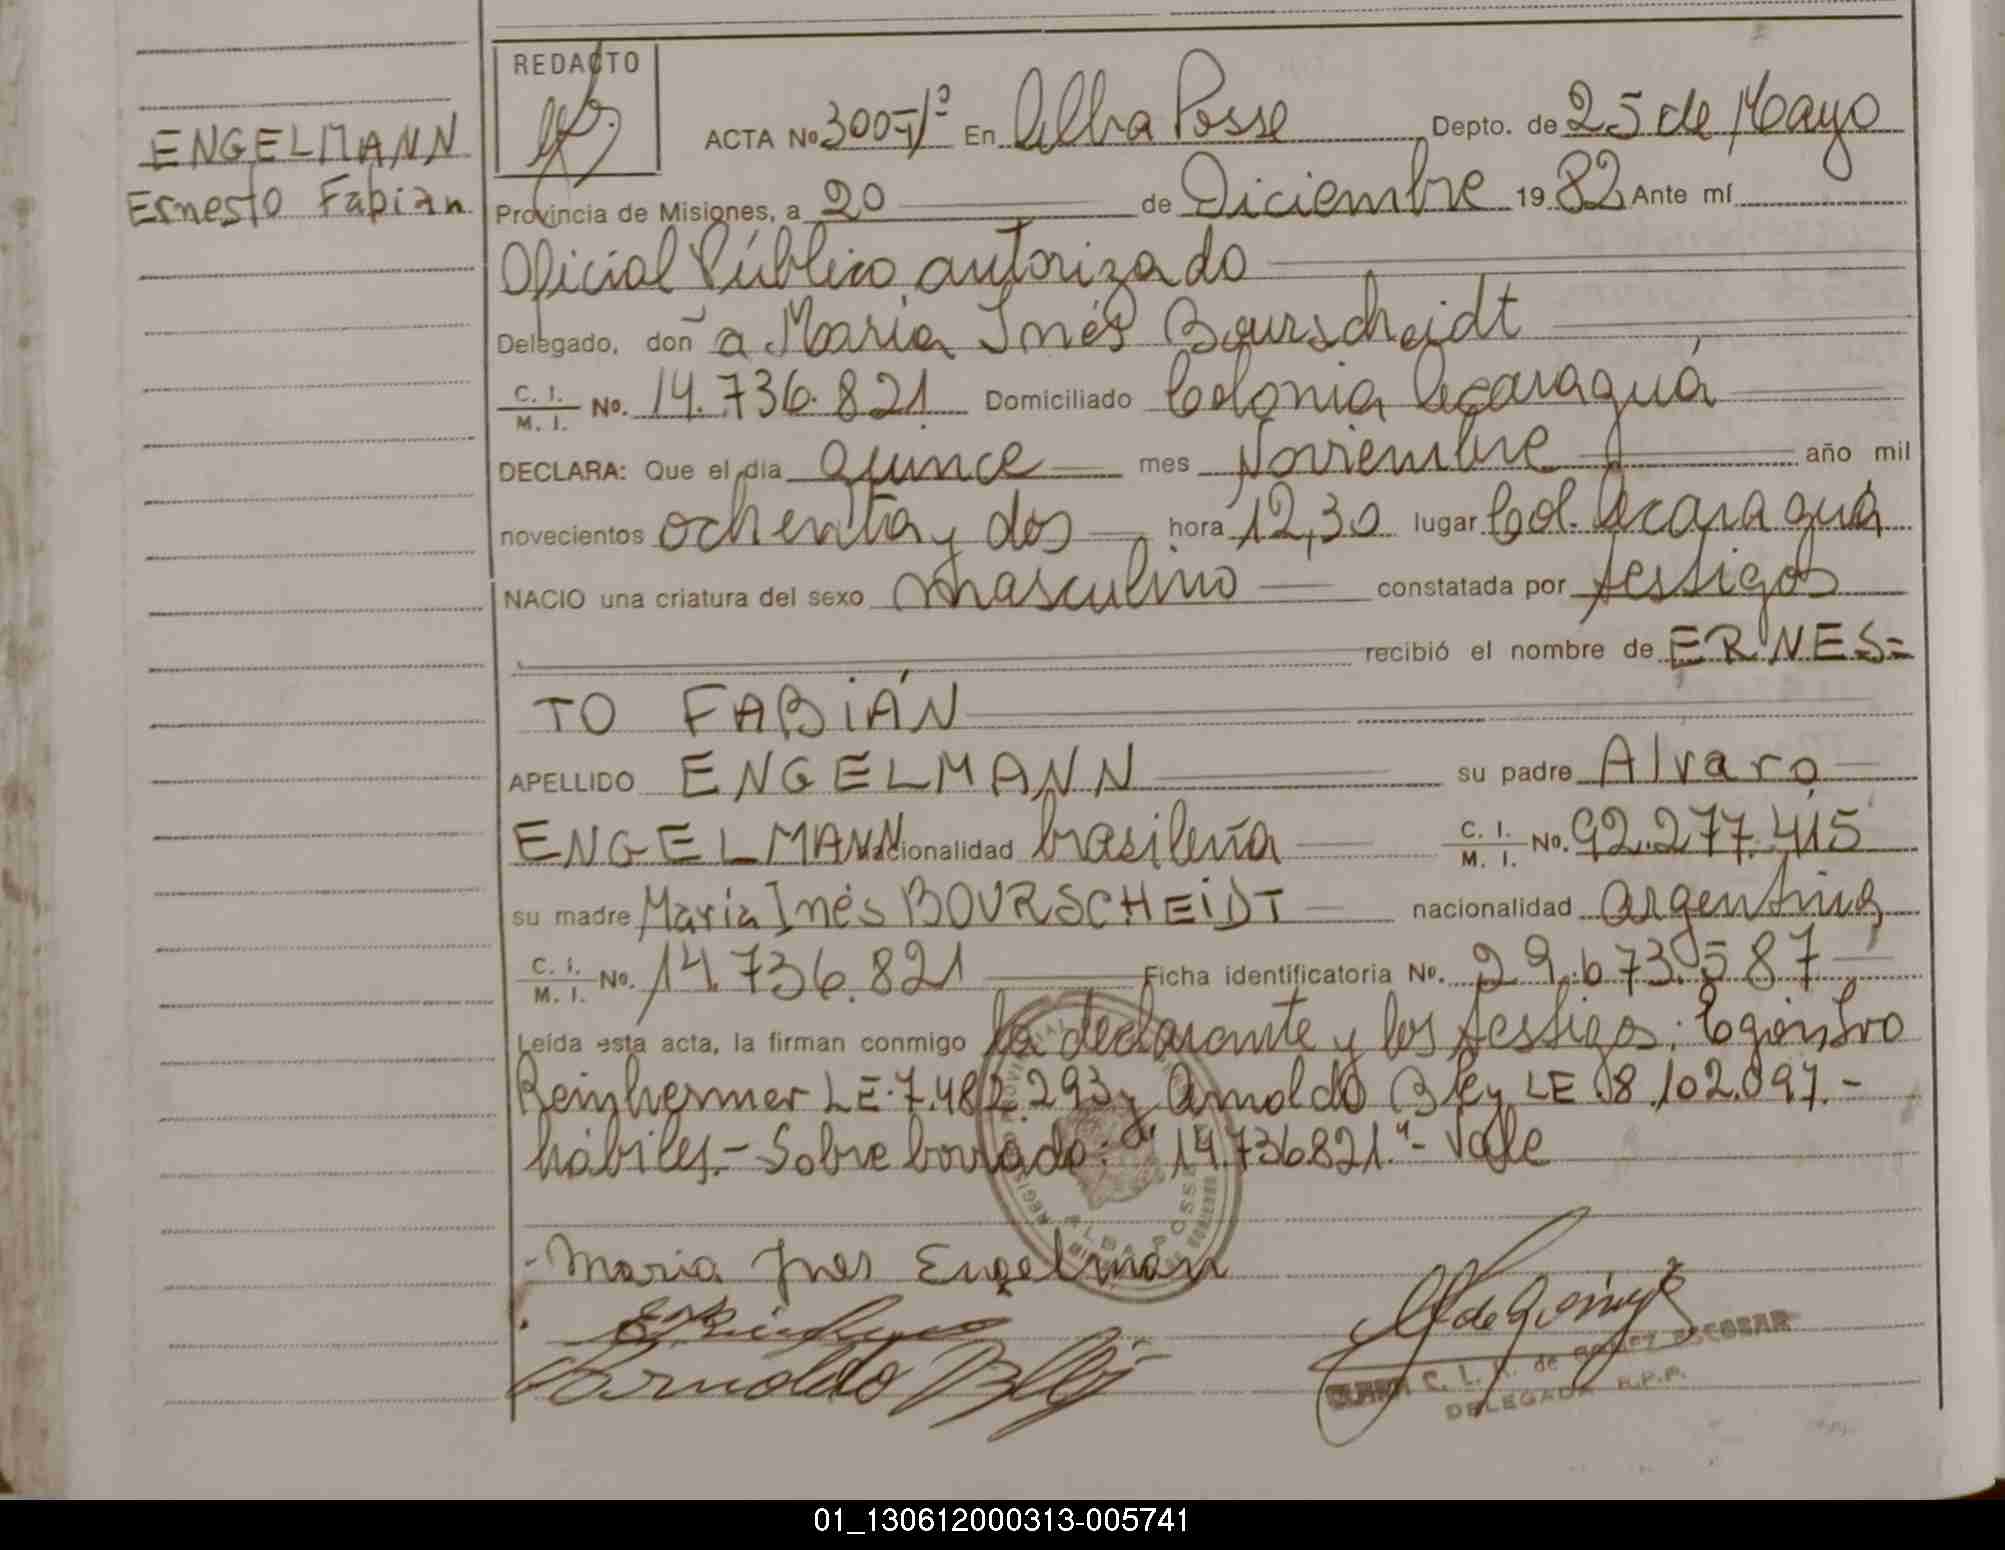 REDACTO
ENGELMANN
Ernesto Fabián
ACTA Nº 300-Tº En Alba Posse Depto. de 25 de Mayo
Provincia de Misiones, a 20 de Diciembre 1982 Ante mí
Oficial Público autorizado
Delegado, don a María Inés Bourscheidt
C. I. / M. I. No. 14.736.821 Domiciliado Colonia Acaraguá
DECLARA: Que el día quince mes Noviembre año mil
novecientos ochenta y dos hora 12,30 lugar Col. Acaraguá
NACIO una criatura del sexo masculino constatada por testigos
recibió el nombre de ERNES=
TO FABIÁN
APELLIDO ENGELMANN su padre Alvaro
ENGELMANN nacionalidad brasileña C. I. / M. I. No. 92.277.415
su madre María Inés BOURSCHEIDT nacionalidad argentina
C. I. / M. I. No. 14.736.821 Ficha identificatoria No. 29.673.587
Leída esta acta, la firman conmigo la declarante y los testigos:
LE.7.482.293 y Arnoldo Bley LE 8.102.097.-
hábiles.- Sobre borrado: "14.736821."- Vale
ALBA POSSE
Maria Ines Engelman
Arnoldo Bley
C. L. de GOMEZ ESCOBAR
DELEGADA R.P.P.
01_130612000313-005741